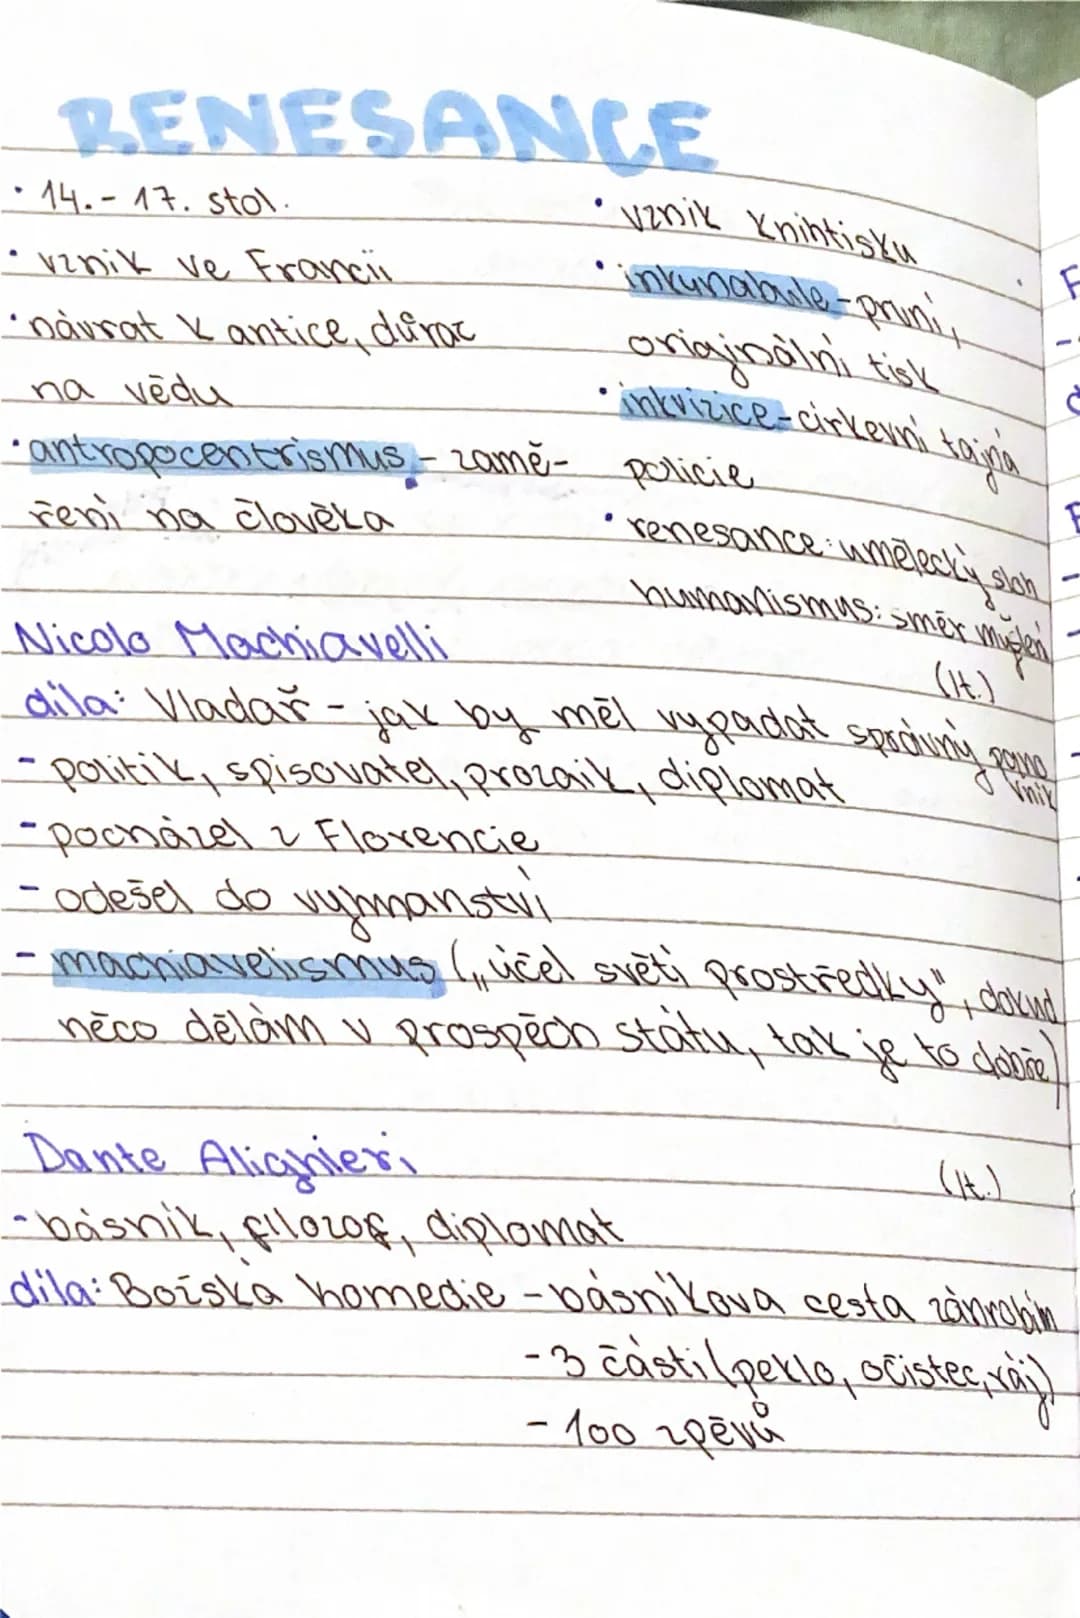 RENESANCE
• 14.- 17. stol.
• vznik ve Francii
• návrat k antice, důraz
na vědu
• antropocentrismus - zamě-
ření na člověka
• vznik knihtisku
• inkunabule - první,
originální tisk
• inkvizice - církevní tajná
policie
• renesance: umělecký sloh
humanismus: směr myšlení
Nicolo Machiavelli
(It.)
díla: Vladař - jak by měl vypadat správný pano
vník
- politik, spisovatel, prozaik, diplomat
- pocházel z Florencie
- odešel do vyhnanství
- machiavelismus („účel světí prostředky", dokud
něco dělám v prospěch státu, tak je to dobře)
Dante Alighieri
(It.)
- básník, filozof, diplomat
díla: Božská komedie - básníkova cesta záhrobím
- 3 části (peklo, očistec, ráj)
- 100 zpěvů